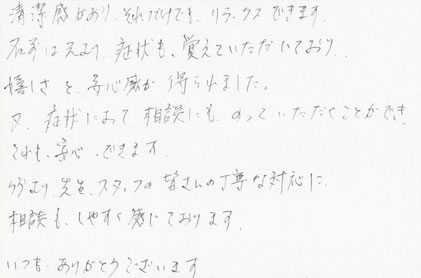 清潔感があり、それだけでも、リラックスできます。
名前は元より、症状も、覚えていただいており、
嬉しさと、安心感が得られました。
又、症状によって相談にも、のっていただくことができ、
とても、安心、できます。
何より、先生、スタッフの皆さんの丁寧な対応に、
相談も、しやすく感じております。
いつも、ありがとうございます